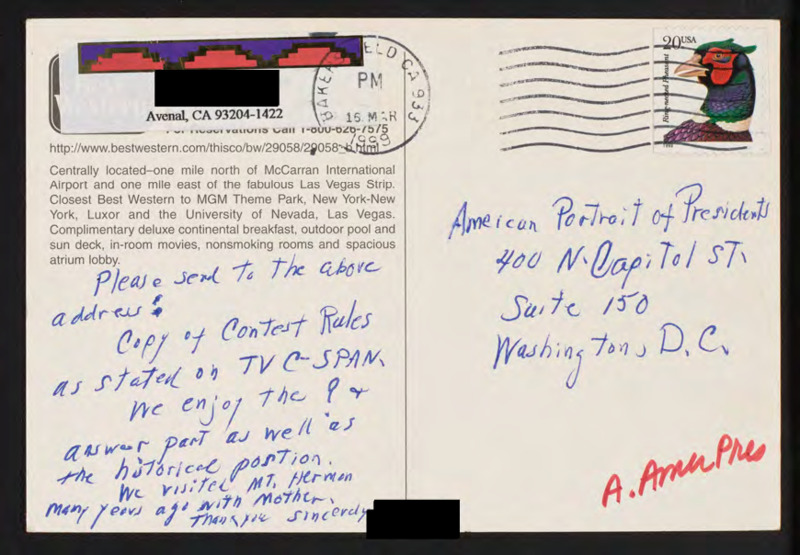 BEST
WESTERN
Avenal, CA 93204-1422
For Reservations Call 1-800-626-7575
http://www.bestwestern.com/thisco/bw/29058/29058_b.html
Centrally located–one mile north of McCarran International
Airport and one mile east of the fabulous Las Vegas Strip.
Closest Best Western to MGM Theme Park, New York-New
York, Luxor and the University of Nevada, Las Vegas.
Complimentary deluxe continental breakfast, outdoor pool and
sun deck, in-room movies, nonsmoking rooms and spacious
atrium lobby.
Please send to the above
address:
Copy of Contest Rules
as stated on TV C-SPAN.
We enjoy the q &
answer part as well as
the historical position.
We visited MT. Hermon
many years ago with Mother.
Thank you Sincerely
BAKERSFIELD CA 933
PM
15 MAR
1999
20USA
Ring-necked Pheasant
American Portrait of Presidents
400 N. Capitol ST.
Suite 150
Washington, D.C.
A. Amer Pres